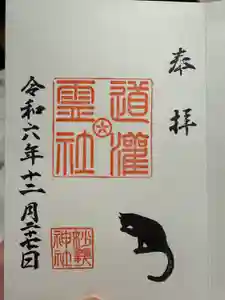 奉拝
道灌
霊社
令和六年十二月廿七日
妙義
神社